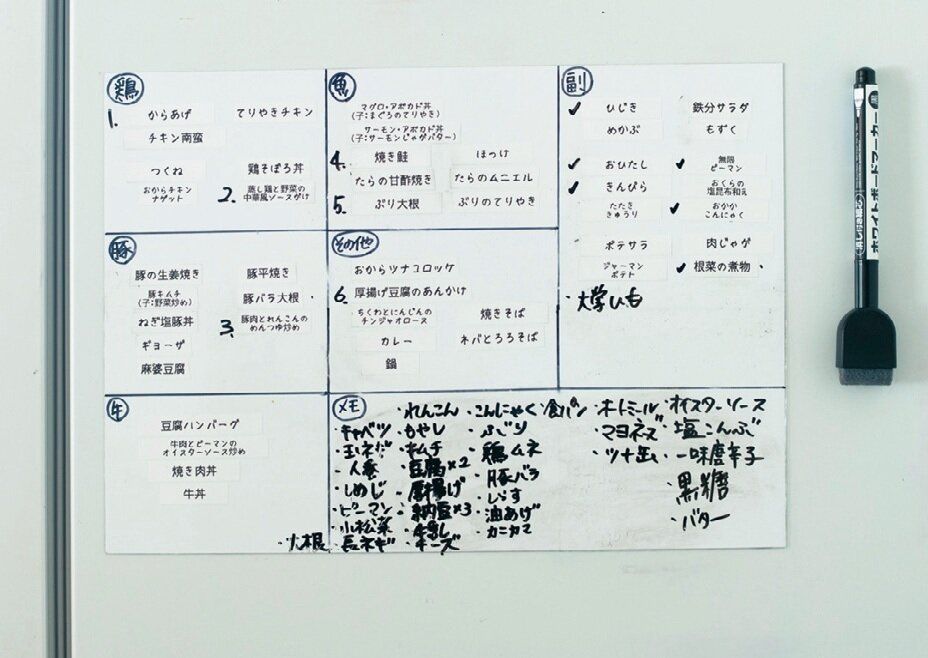 鶏
1. からあげ てりやきチキン
チキン南蛮
つくね 鶏そぼろ丼
おからチキン
ナゲット
2. 蒸し鶏と野菜の
中華風ソースがけ
魚
マグロ・アボカド丼
(子:まぐろのてりやき)
サーモン・アボカド丼
(子:サーモンじゃがバター)
4. 焼き鮭 ほっけ
たらの甘酢焼き たらのムニエル
5. ぶり大根 ぶりのてりやき
副
✓ ひじき 鉄分サラダ
めかぶ もずく
✓ おひたし ✓ 無限
ピーマン
✓ きんぴら おくらの
塩昆布和え
たたき
きゅうり
✓ おかか
こんにゃく
ポテサラ 肉じゃが
ジャーマン
ポテト
✓ 根菜の煮物・
・大学いも
豚
豚の生姜焼き 豚平焼き
豚キムチ
(子:野菜炒め)
豚バラ大根・
ねぎ塩豚丼
3. 豚肉とれんこんの
めんつゆ炒め
ギョーザ
麻婆豆腐
その他
おからツナコロッケ
6. 厚揚げ豆腐のあんかけ
ちくわとにんじんの
チンジャオロース
焼きそば
カレー ネバとろろそば
鍋
牛
豆腐ハンバーグ
牛肉とピーマンの
オイスターソース炒め
焼き肉丼
牛丼
メモ
・キャベツ
・玉ネギ
・人参
・しめじ
・ピーマン
・小松菜
・大根 ・長ネギ
・れんこん
・もやし
・キムチ
・豆腐×2
・厚揚げ
・納豆×3
・牛乳
・チーズ
・こんにゃく
・ぶり
・鶏ムネ
・豚バラ
・しらす
・油あげ
・カニカマ
・食パン
・オートミール
・マヨネーズ
・ツナ缶
・オイスターソース
・塩こんぶ
・一味唐辛子
・黒糖
・バター
ホワイトボードマーカー